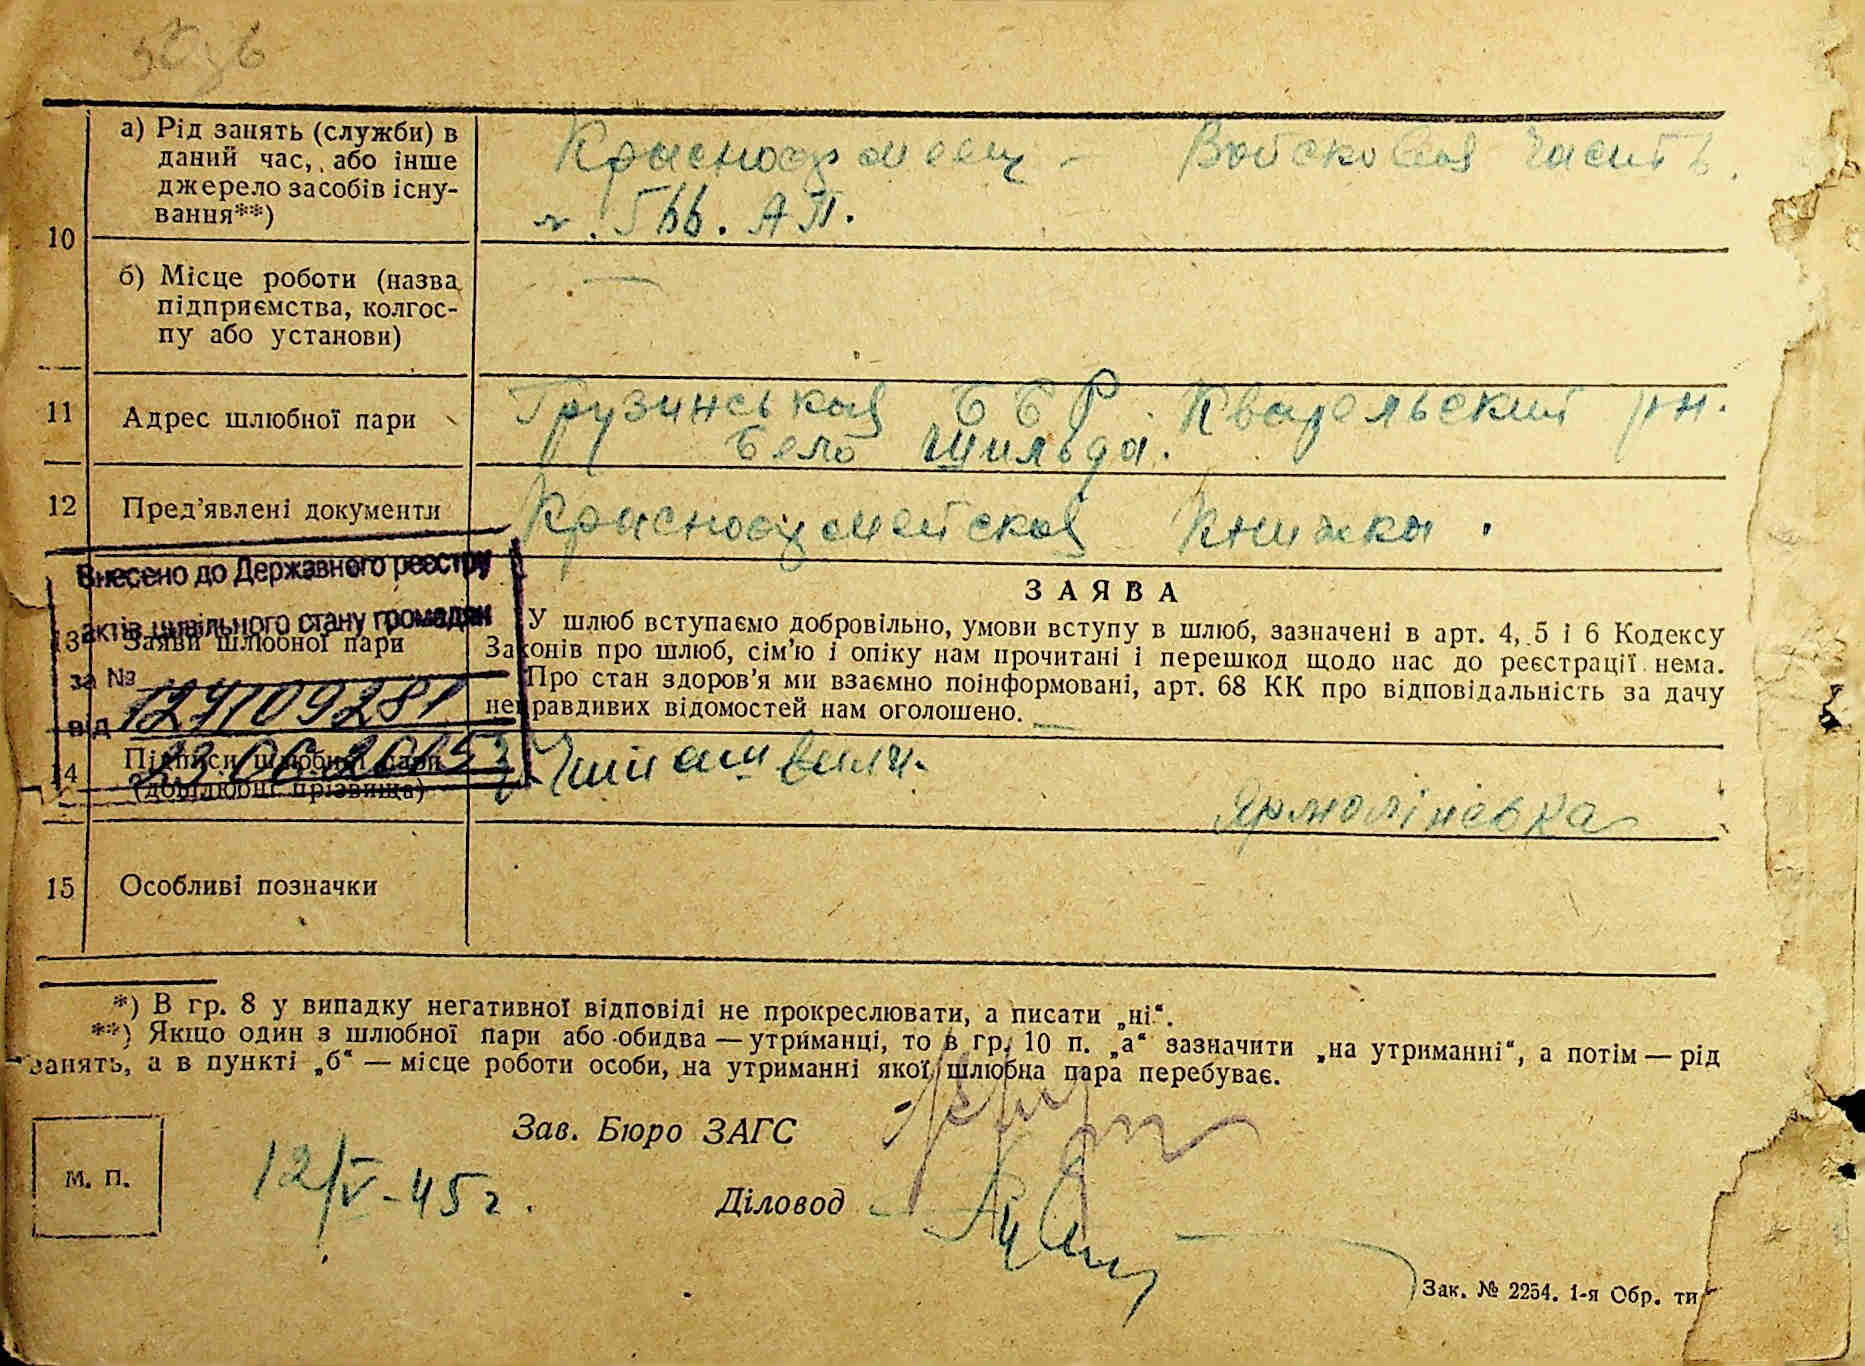 10
а) Рід занять (служби) в
даний час, або інше
джерело засобів існу-
вання**)
Красноармеец – Войсковая часть.
АП.
б) Місце роботи (назва
підприємства, колгос-
пу або установи)
—
11
Адрес шлюбної пари
Грузинськая ССР. Кварельский рн.
Село Шильда.
12
Пред’явлені документи
Красноармейская Книжка.
Внесено до Державного реєстру
актів цивільного стану громадян
за №
від
23.06.2015
13
Заяви шлюбної пари
ЗАЯВА
У шлюб вступаємо добровільно, умови вступу в шлюб, зазначені в арт. 4, 5 і 6 Кодексу
Законів про шлюб, сім’ю і опіку нам прочитані і перешкод щодо нас до реєстрації нема.
Про стан здоров’я ми взаємно поінформовані, арт. 68 КК про відповідальність за дачу
неправдивих відомостей нам оголошено.
14
Підписи шлюбної пари
(дошлюбні прізвища)
Ярмолінська
15
Особливі позначки
*) В гр. 8 у випадку негативної відповіді не прокреслювати, а писати „ні“.
**) Якщо один з шлюбної пари або обидва — утриманці, то в гр. 10 п. „а“ зазначити „на утриманні“, а потім — рід
занять, а в пункті „б“ — місце роботи особи, на утриманні якої шлюбна пара перебуває.
Зав. Бюро ЗАГС
М. П.
12/V-45 г.
Діловод
Зак. № 2254. 1-я Обр. ти